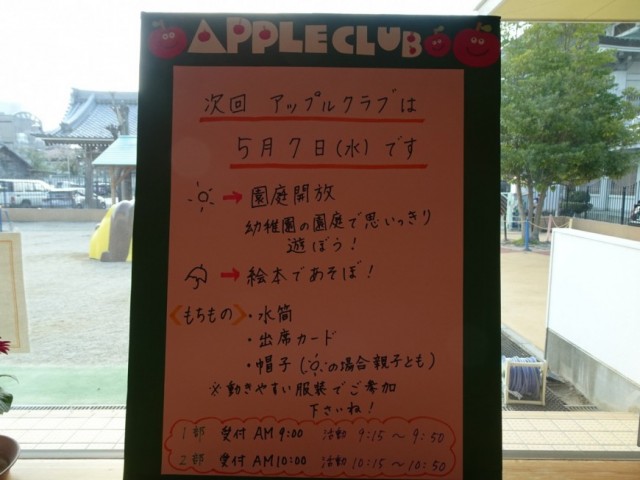 APPLE CLUB
次回 アップルクラブは
5月7日(水)です
→ 園庭開放
幼稚園の園庭で思いっきり
遊ぼう!
→ 絵本であそぼ!
〈もちもの〉・水筒
・出席カード
・帽子(の場合親子とも)
※動きやすい服装でご参加
下さいね!
1部 受付 AM 9:00 活動 9:15〜9:50
2部 受付 AM 10:00 活動 10:15〜10:50